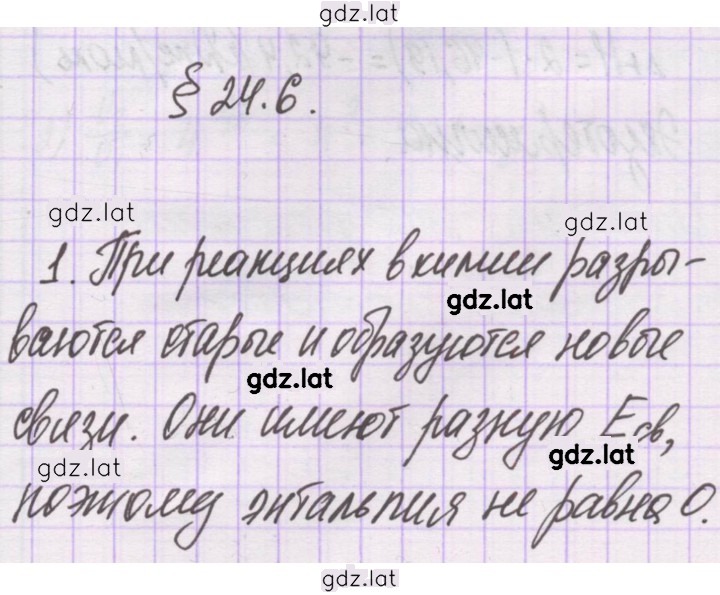 gdz.lat
§ 24.6.
gdz.lat
gdz.lat
1. При реакциях в химии разры-
gdz.lat
ваются старые и образуются новые
gdz.lat
связи. Они имеют разную Eсв,
gdz.lat
gdz.lat
поэтому энтальпия не равна 0.
gdz.lat